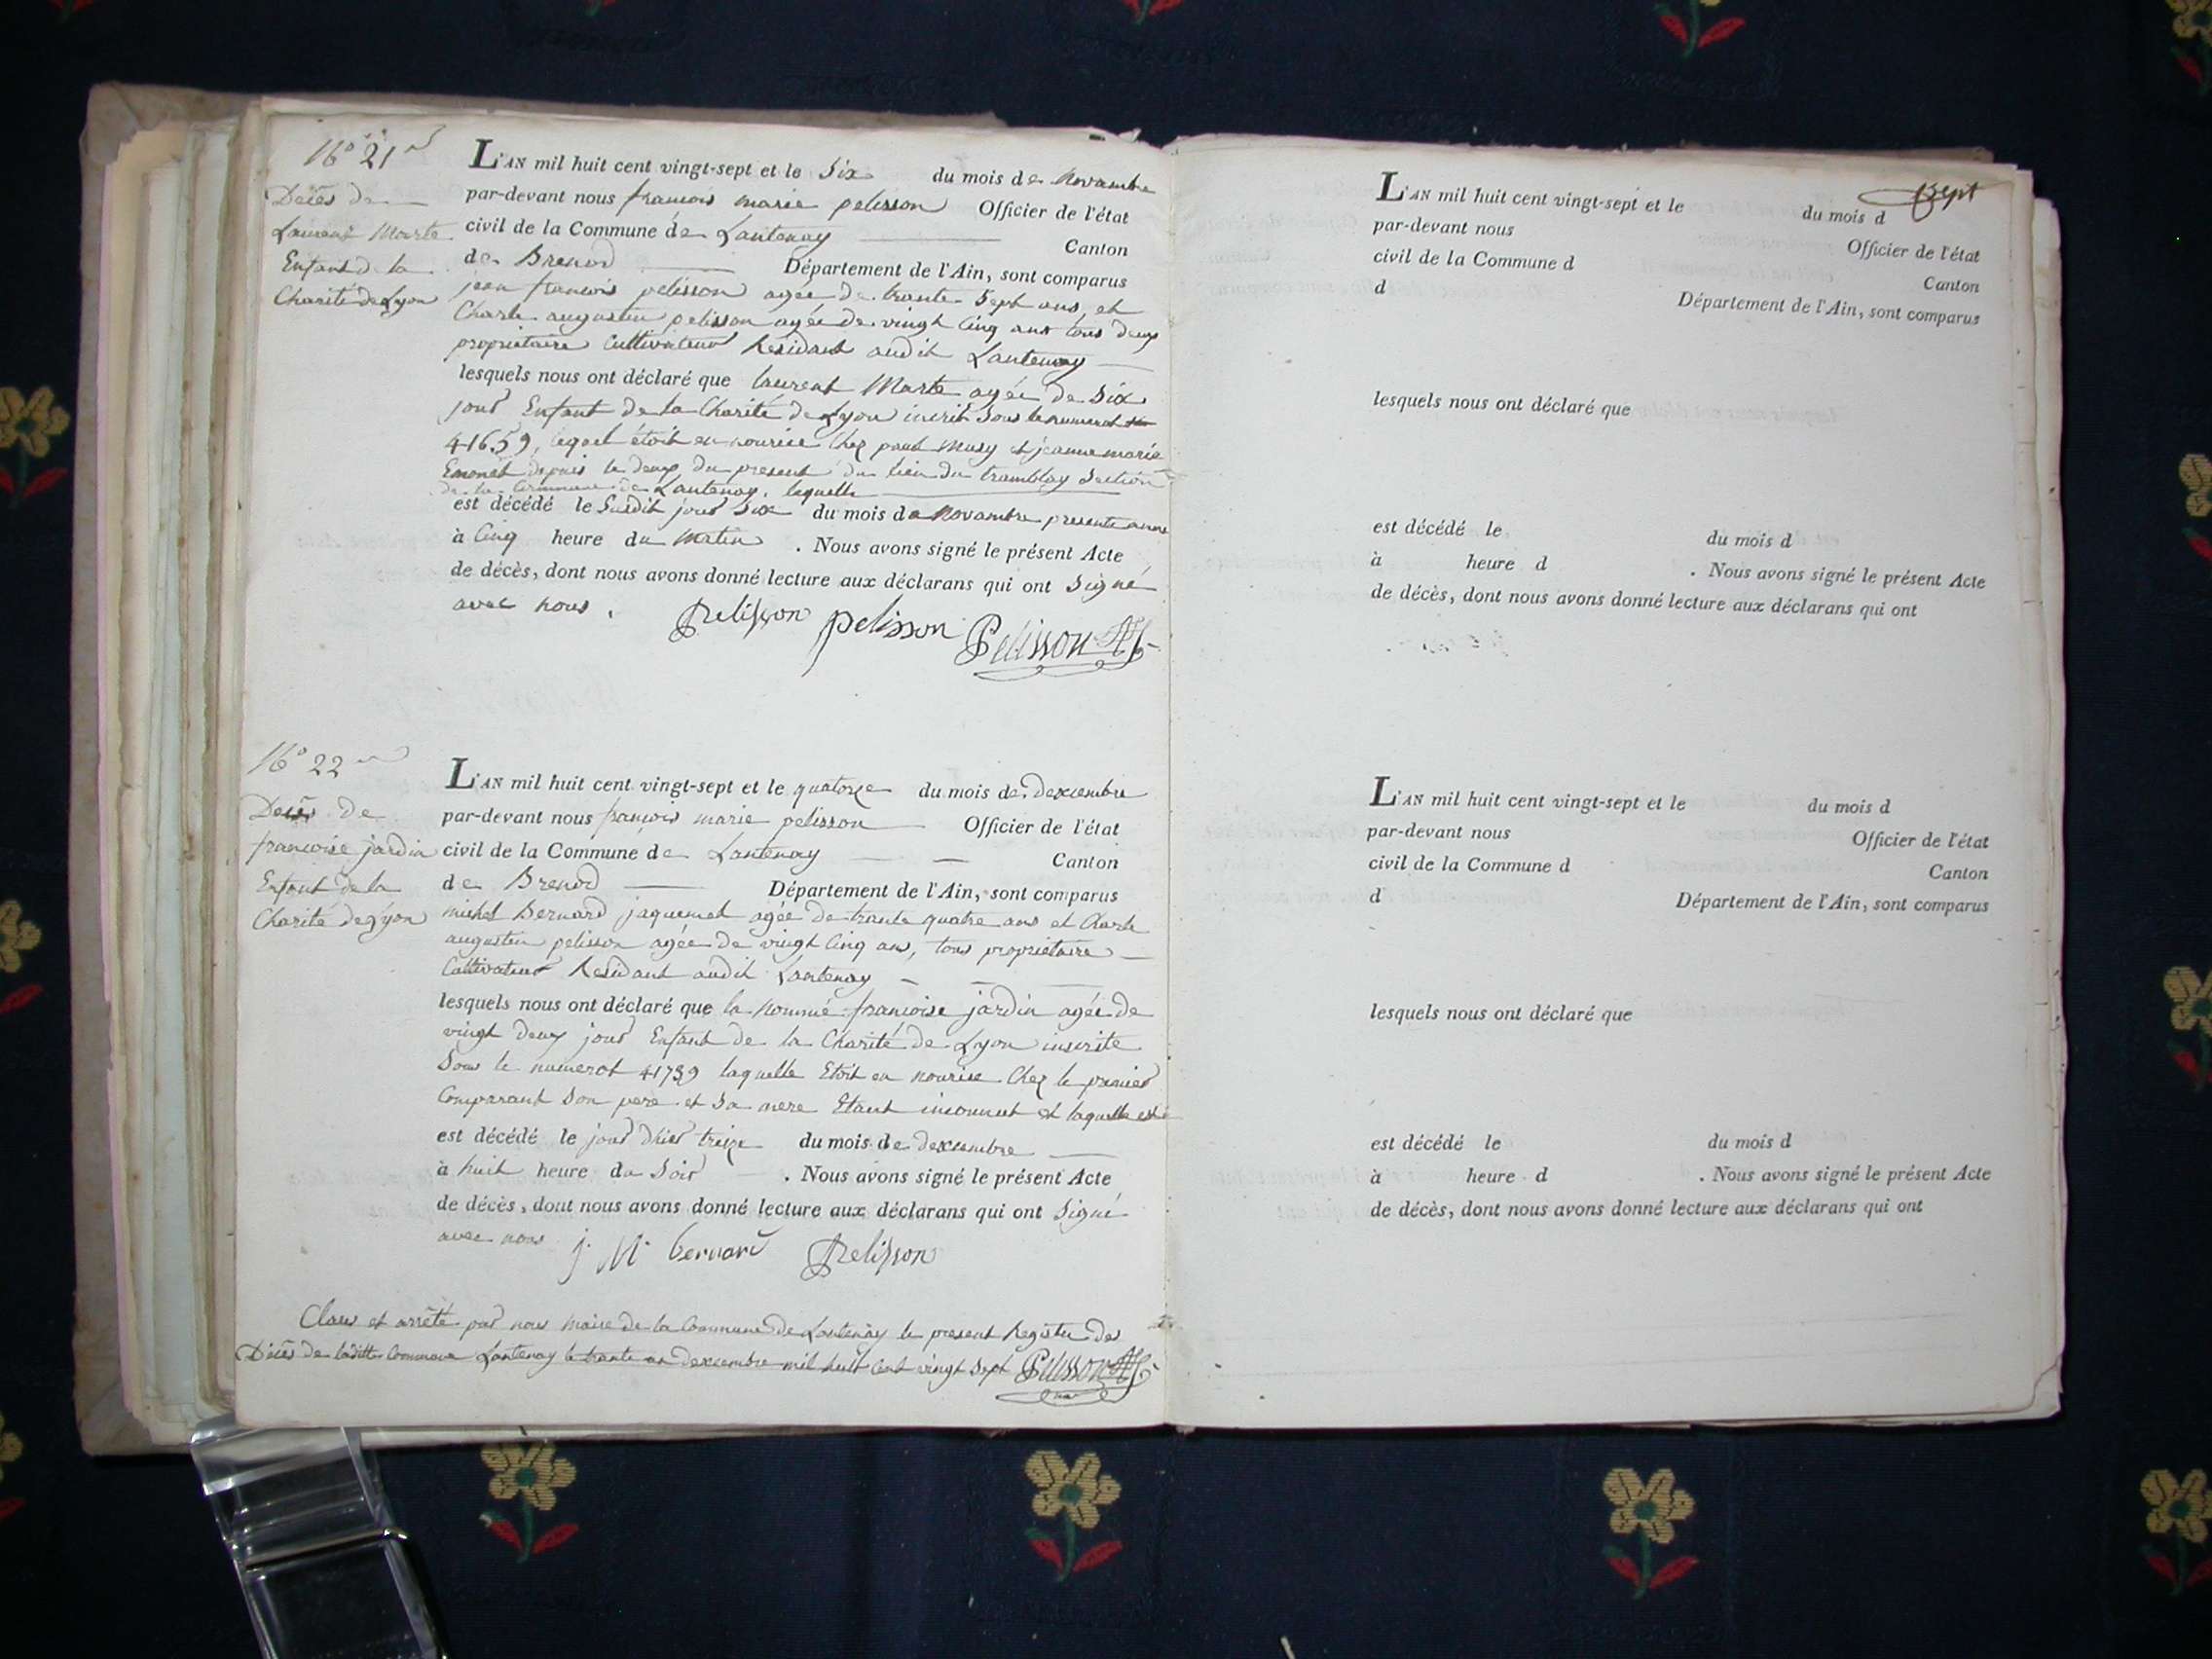 N° 21
Décès de
Laurent Marte
Enfant d la
Charité de Lyon
L'AN mil huit cent vingt-sept et le Six du mois de Novambre
par-devant nous francois marie pelisson Officier de l'état
civil de la Commune de Lantenay Canton
de Brenod Département de l'Ain, sont comparus
jean francois pelisson agée de trante Sept ans, et
Charle augustin pelisson agée de vingt Cinq ans tous deux
propriétaire Cultivateur Residant audit Lantenay
lesquels nous ont déclaré que laurent Marte agée de Six
jour Enfant de la Charité de Lyon incrit Sous le numerot
41659, lequel étoit en nourice Chez paul Musy et jeanne marie
Emonet depuis le deux du present du lieu du tramblay Section
de la Commune de Lantenay, laquelle
est décédé le Susdit jour Six du mois de Novambre presente anne
à Cinq heure du Matin . Nous avons signé le présent Acte
de décès, dont nous avons donné lecture aux déclarans qui ont Signé
avec nous.
Pelisson pelisson Pelisson
N° 22
Decès de
francoise jardin
Enfant de la
Charité de Lyon
L'AN mil huit cent vingt-sept et le quatorze du mois de dexcembre
par-devant nous françois marie pelisson Officier de l'état
civil de la Commune de Lantenay Canton
de Brenod Département de l'Ain, sont comparus
michel Bernard jaquemet agée de trante quatre ans et Charle
augustin pelisson agée de vingt Cinq ans, tous propriétaire
Cultivateur Residant audit Lantenay
lesquels nous ont déclaré que la nommé françoise jardin agée de
vingt deux jour Enfant de la Charité de Lyon inscrite
Sous le numerot 41739 laquelle Etoit en nourise Chez le premier
Comparant Son pere et Sa mere Etant inconnut et laquelle est
est décédé le jour d'hier treize du mois de dexcembre
à huit heure du Soir . Nous avons signé le présent Acte
de décès, dont nous avons donné lecture aux déclarans qui ont Signé
avec nous
j. M. bernard Pelisson
Claus et arrêté par nous maire de la Commune de Lantenay le present Registre des
Décès de laditte Commune Lantenay le trante un dexcembre mil huit Cent vingt Sept Pelisson
Sept
L'AN mil huit cent vingt-sept et le du mois d
par-devant nous Officier de l'état
civil de la Commune d Canton
d Département de l'Ain, sont comparus
lesquels nous ont déclaré que
est décédé le du mois d
à heure d . Nous avons signé le présent Acte
de décès, dont nous avons donné lecture aux déclarans qui ont
L'AN mil huit cent vingt-sept et le du mois d
par-devant nous Officier de l'état
civil de la Commune d Canton
d Département de l'Ain, sont comparus
lesquels nous ont déclaré que
est décédé le du mois d
à heure d . Nous avons signé le présent Acte
de décès, dont nous avons donné lecture aux déclarans qui ont